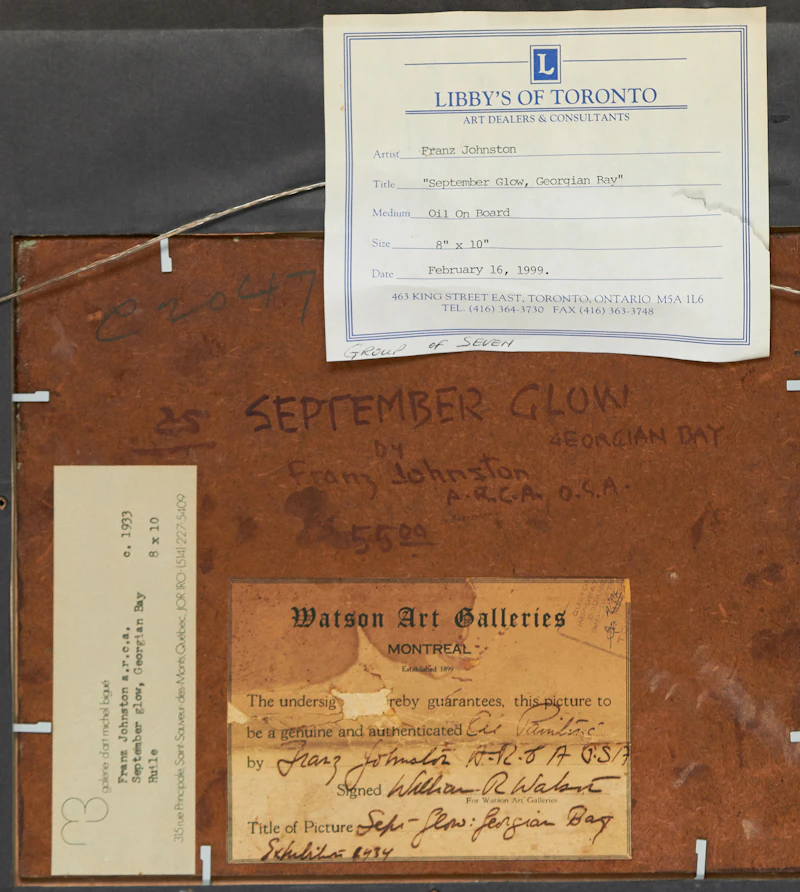 L
LIBBY'S OF TORONTO
ART DEALERS & CONSULTANTS
Artist Franz Johnston
Title "September Glow, Georgian Bay"
Medium Oil On Board
Size 8" x 10"
Date February 16, 1999.
463 KING STREET EAST, TORONTO, ONTARIO M5A 1L6
TEL. (416) 364-3730 FAX (416) 363-3748
GROUP OF SEVEN
C2047
25 SEPTEMBER GLOW
GEORGIAN BAY
by
Franz Johnston
A.R.C.A. O.S.A.
55 00
galerie d'art michel bigué
Franz Johnston a.r.c.a. c. 1933
September glow, Georgian Bay
Huile 8 x 10
315 rue Principale, Saint-Sauveur-des-Monts, Québec, J0R 1R0 · (514) 227-5409
Watson Art Galleries
MONTREAL
Established 1899
The undersig reby guarantees, this picture to
be a genuine and authenticated Oil Painting
by Franz Johnston A.R.C.A O.S.A
Signed William R Watson
For Watson Art Galleries
Title of Picture Sept. Glow: Georgian Bay
Exhibition 1934